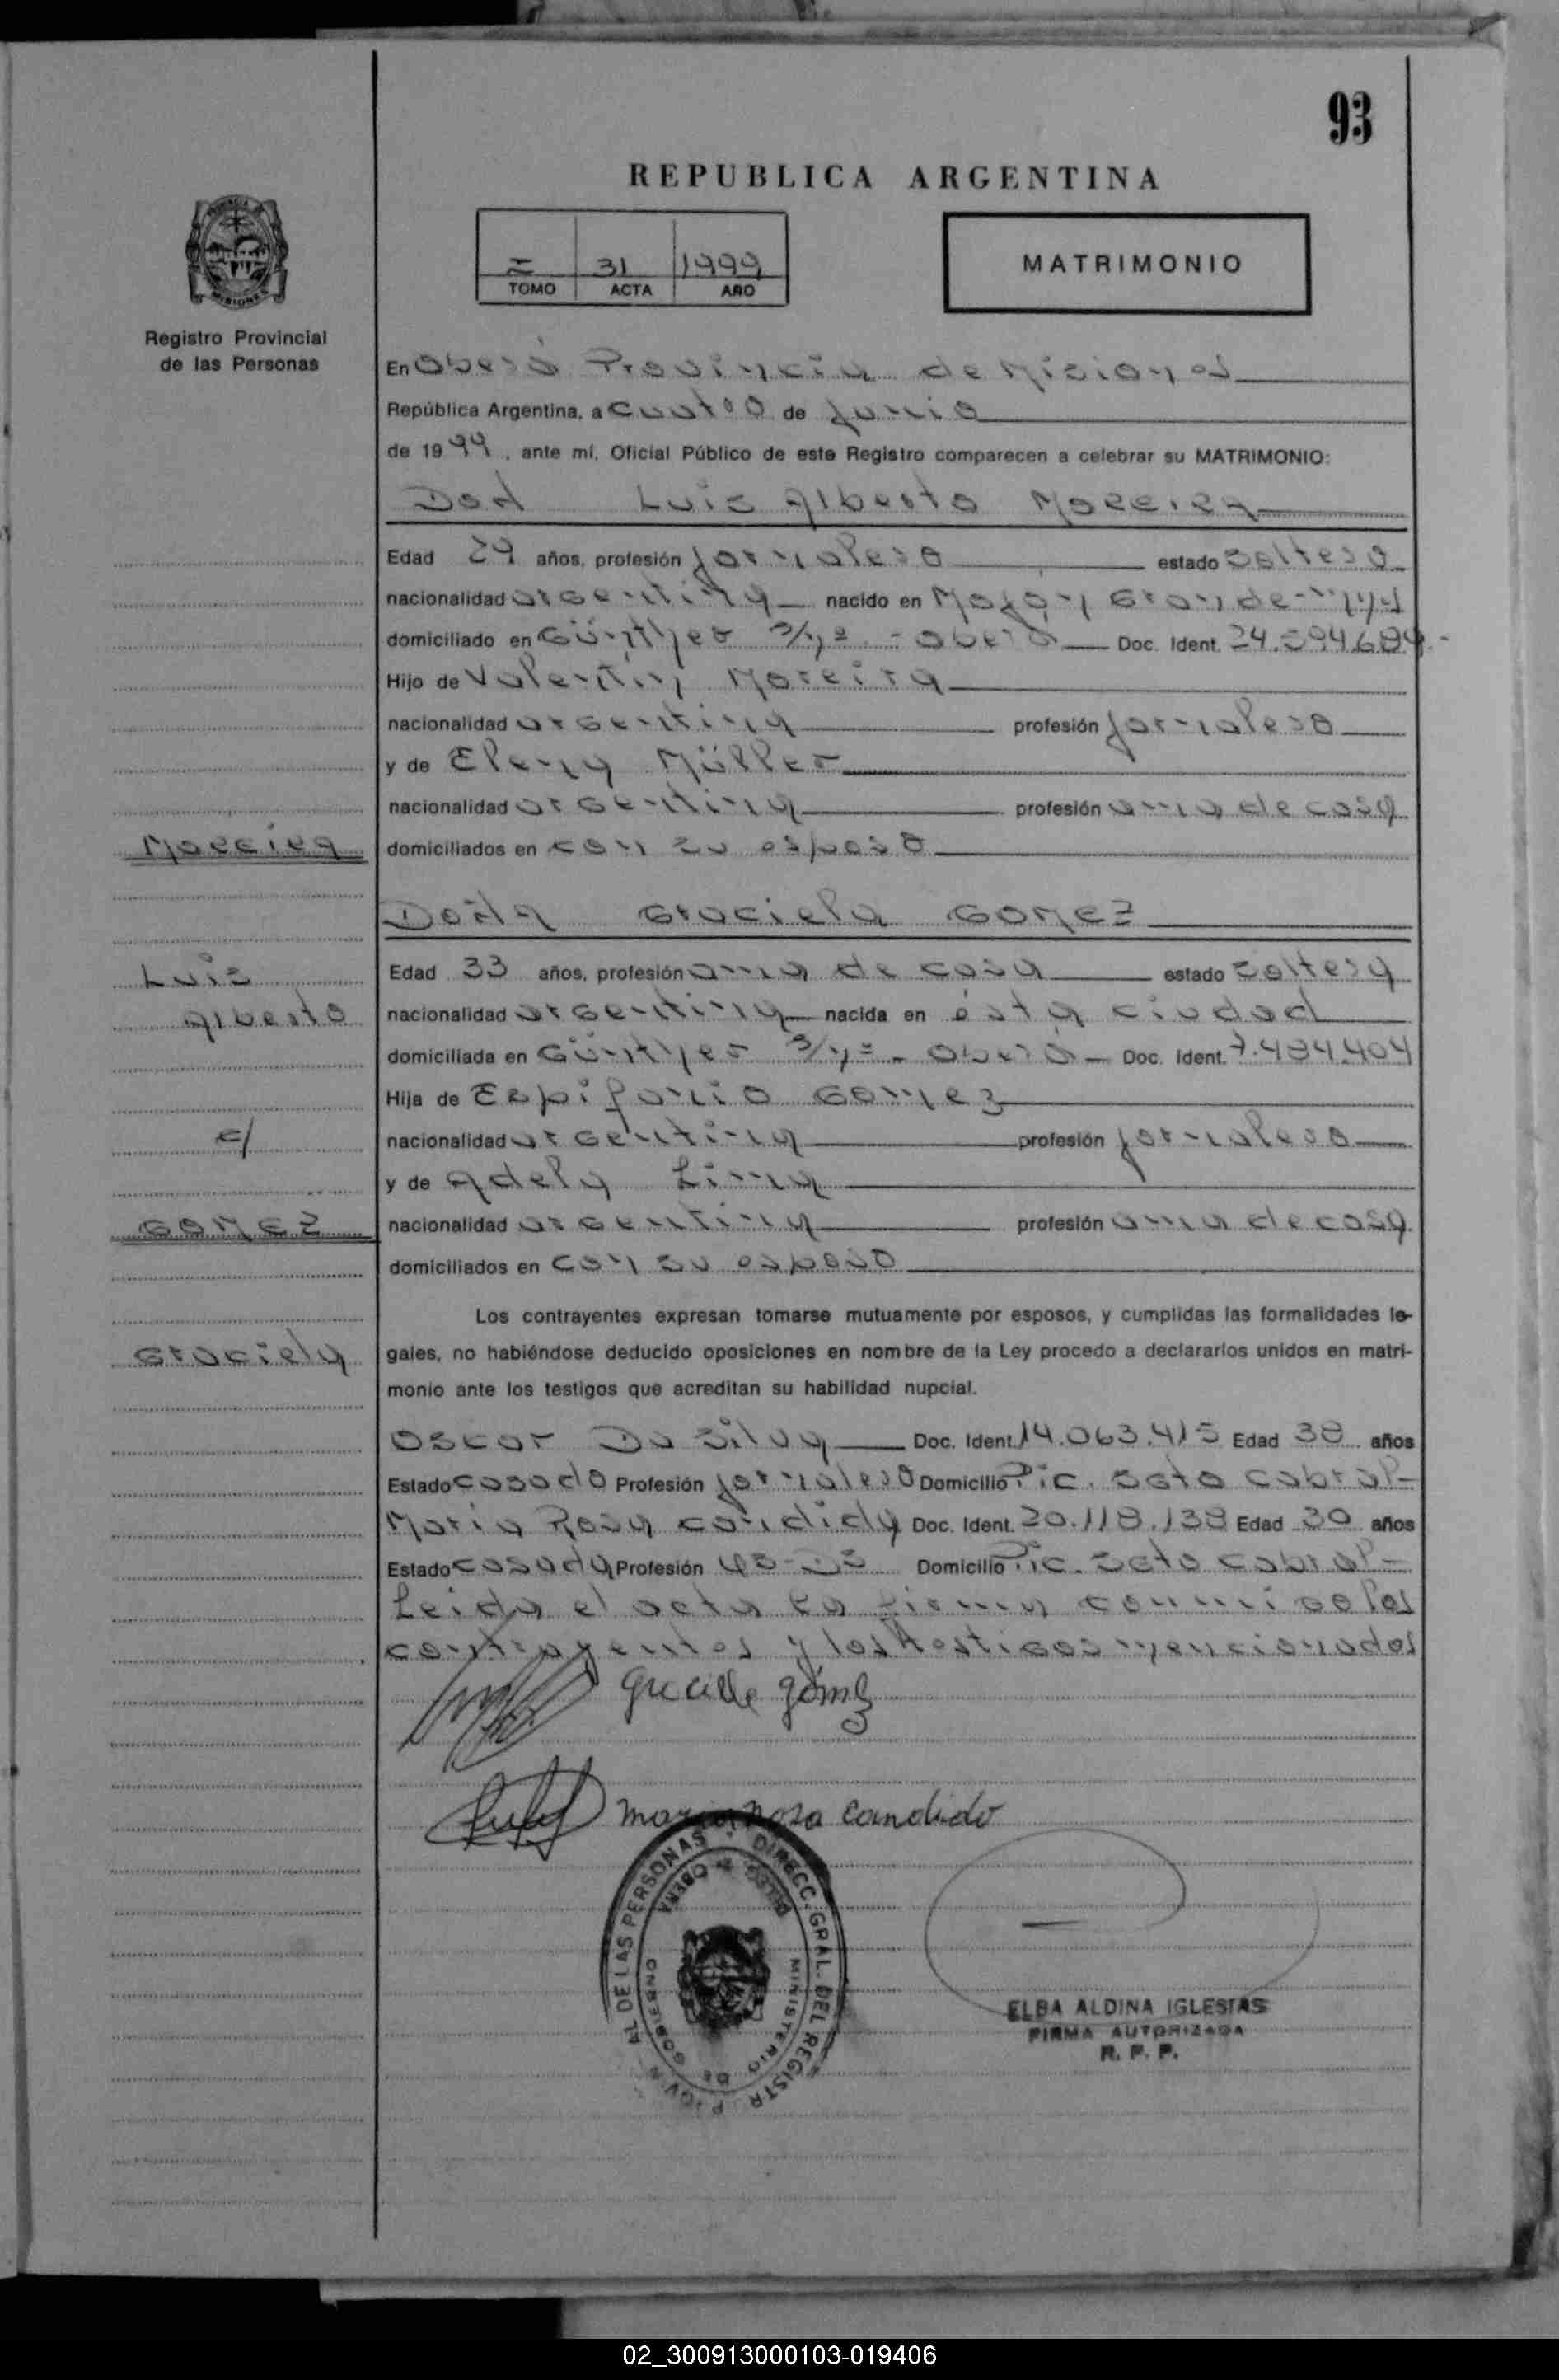 93
REPUBLICA ARGENTINA
31 1999
TOMO ACTA AÑO
MATRIMONIO
Registro Provincial
de las Personas
En Oberá Provincia de Misiones
República Argentina, a cuatro de junio
de 1999, ante mí, Oficial Público de este Registro comparecen a celebrar su MATRIMONIO:
Don Luis Alberto Moreira
Edad 29 años, profesión jornalero estado soltero
nacionalidad argentina nacido en Mojon Grande
domiciliado en Günther s/nº - Oberá Doc. Ident. 24.594.684.-
Hijo de Valentin Moreira
nacionalidad argentina profesión jornalero
y de Elena Müller
nacionalidad argentina profesión ama de casa
Moreira
domiciliados en con su esposo
Doña Graciela GOMEZ
Luis
Edad 33 años, profesión ama de casa estado soltera
Alberto
nacionalidad argentina nacida en ésta ciudad
domiciliada en Günther s/nº - Oberá - Doc. Ident. 7.494.404
Hija de Epifanio Gomez
c/
nacionalidad argentina profesión jornalero
y de Adela Lima
GOMEZ
nacionalidad argentina profesión ama de casa
domiciliados en con su esposo
Los contrayentes expresan tomarse mutuamente por esposos, y cumplidas las formalidades le-
Graciela
gales, no habiéndose deducido oposiciones en nombre de la Ley procedo a declararlos unidos en matri-
monio ante los testigos que acreditan su habilidad nupcial.
Oscar Da Silva Doc. Ident. 14.063.415 Edad 38 años
Estado casado Profesión jornalero Domicilio Pic. Sgto Cabral-
Maria Rosa Candida Doc. Ident. 20.118.138 Edad 30 años
Estado casada Profesión Domicilio Pic. Sgto Cabral-
Leida el acta la firman conmigo los
contrayentes y los testigos mencionados
maria Rosa Candido
DIRECC. GRAL. DEL REGISTR AL DE LAS PERSONAS
OBERA
MINISTERIO DE GOBIERNO
ELBA ALDINA IGLESIAS
FIRMA AUTORIZADA
R. P. P.
02_300913000103-019406